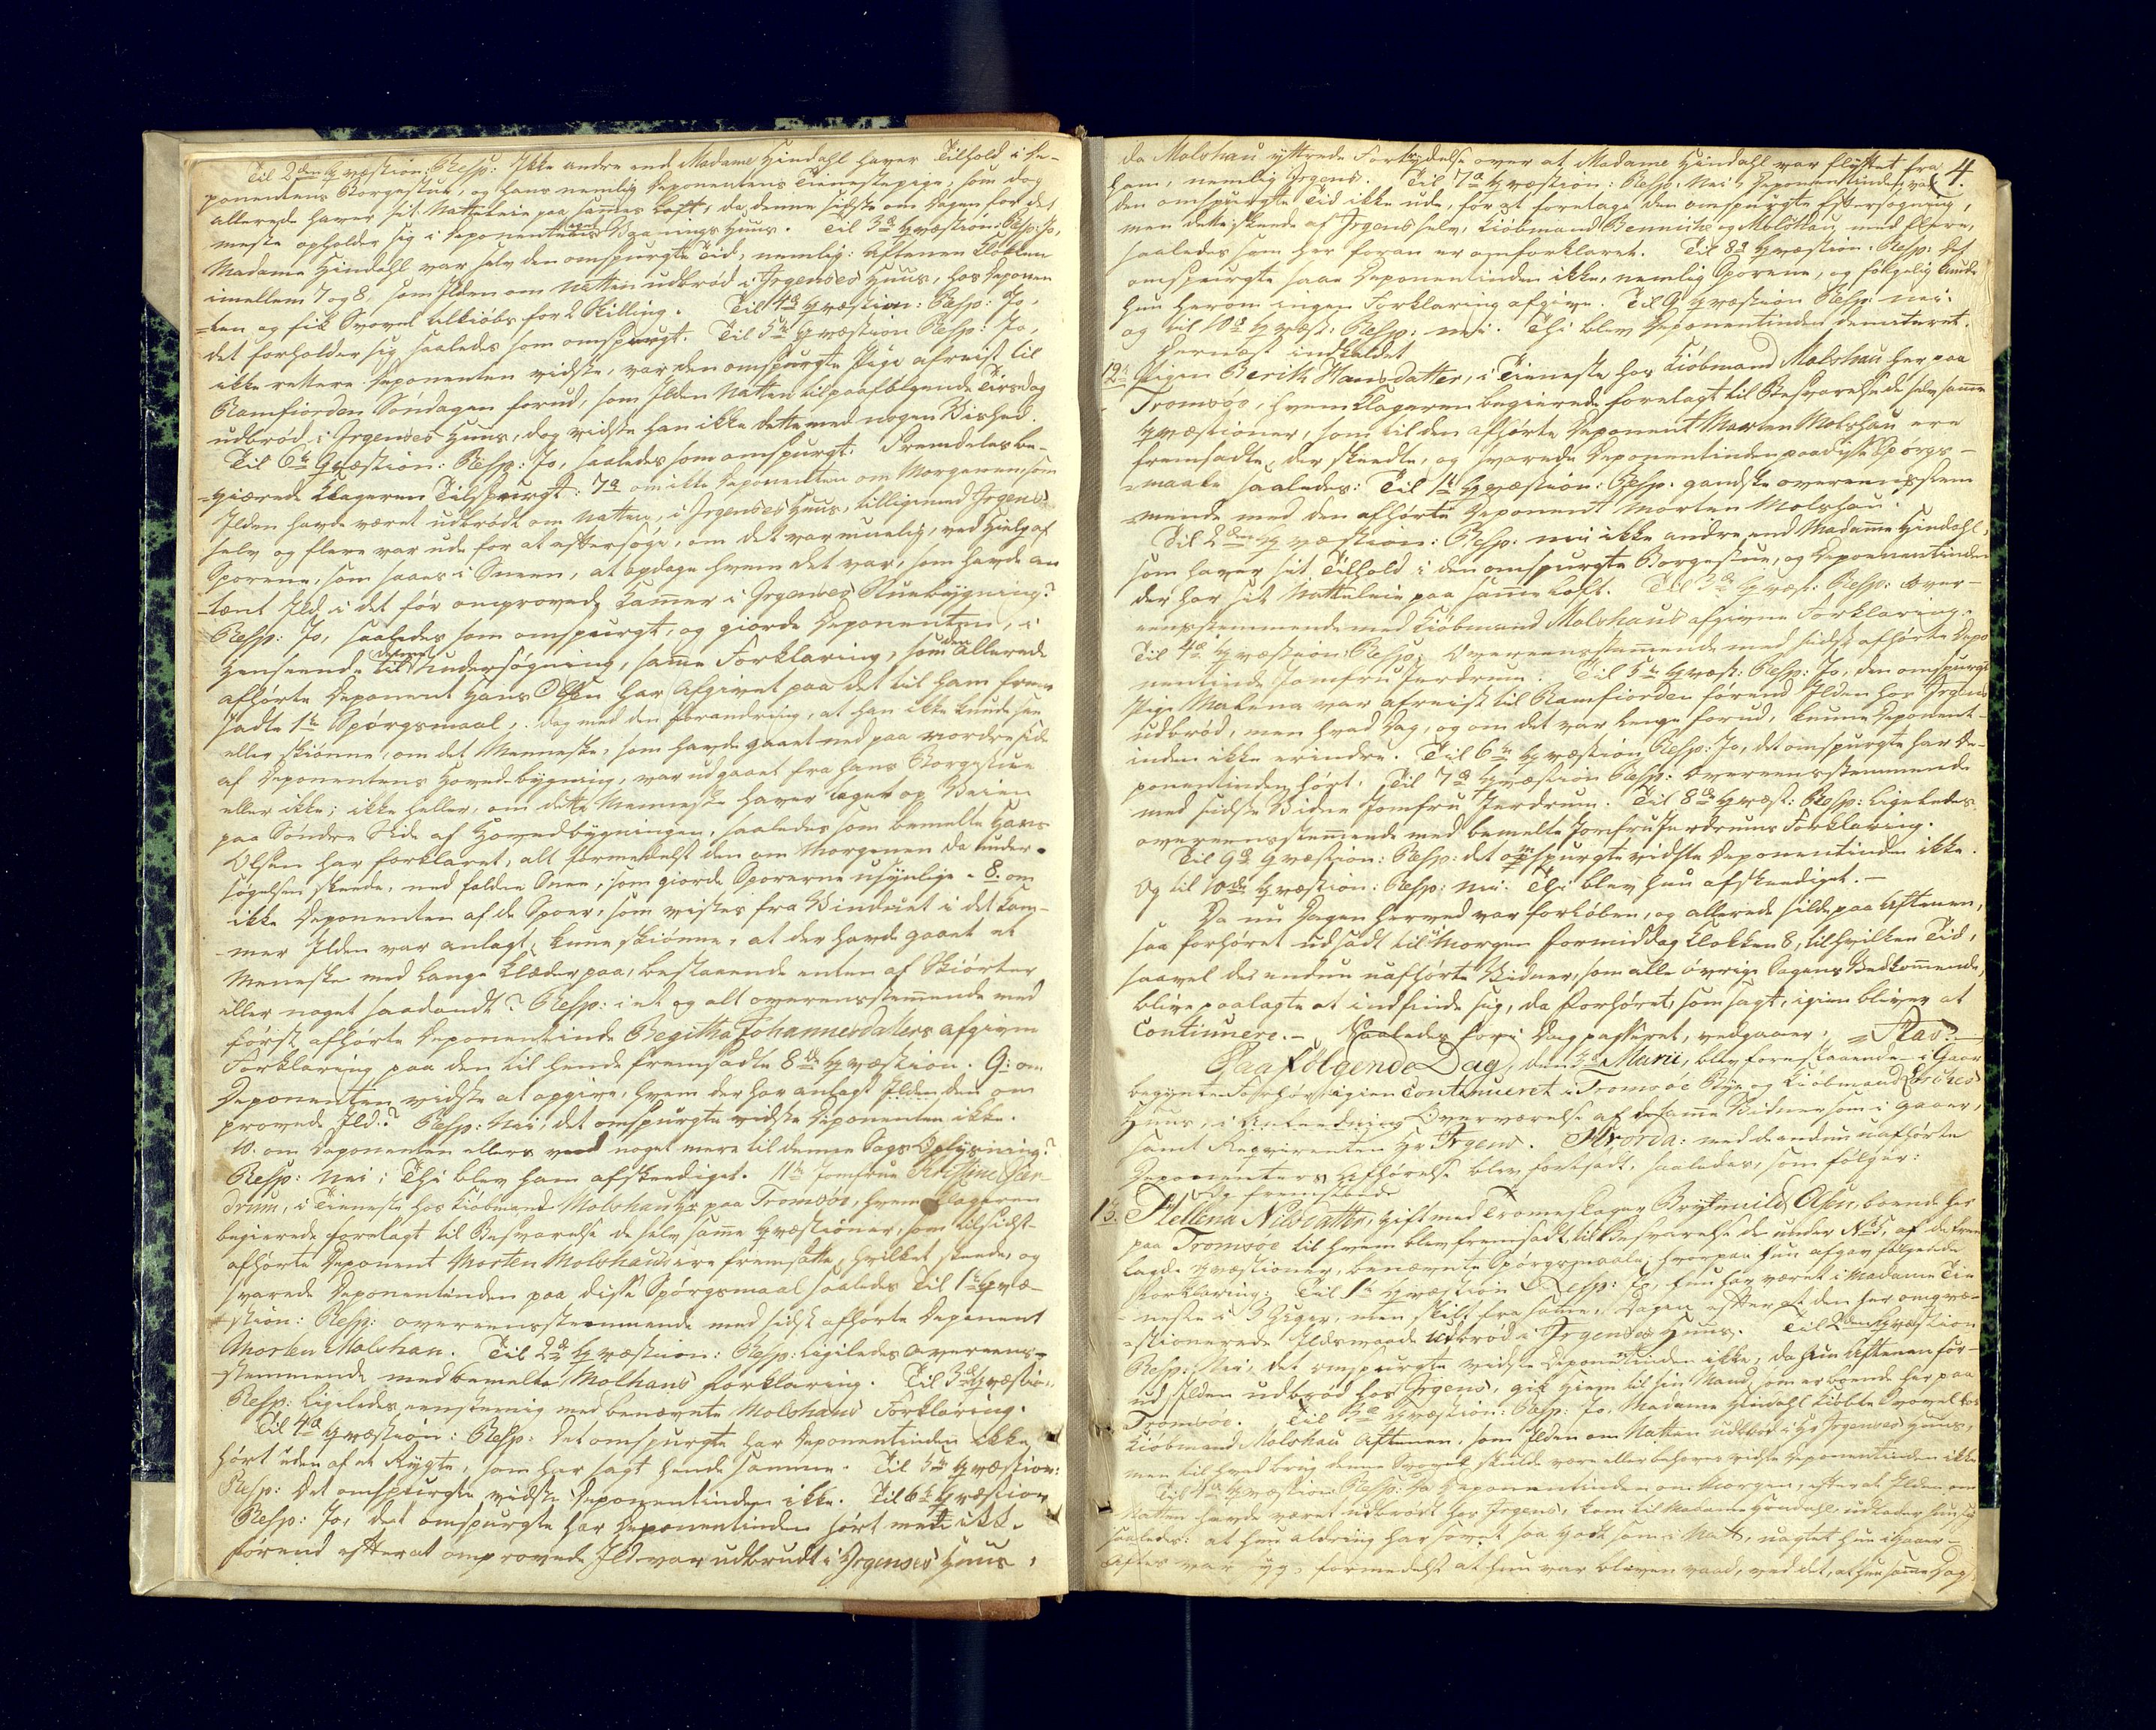 Til 2den Qvæstion: Resp: Ikke andre end Madame Hindahl haver Tilhold i De-
ponentens Borgestue, og hans nemlig Deponentens Tienestepige, som dog
allerede haver sit Natteleie paa samme Loft, da denne sidste om Dagen for det
meste opholder sig i Deponentens Vaanings Huus. Til 3de Qvæstion: Resp: Jo,
Madame Hindahl var selv den omspurgte Tid, nemlig: Aftenen Klokken
imellem 7 og 8, som Ilden om Natten udbrød i Jrgenses Huus, hos Deponen
-ten og fik Svovel tilkiøbs for 2 Skilling. Til 4de Qvæstion: Resp: Jo,
det forholder sig saaledes som omspurgt. Til 5te Qvæstion Resp: Jo,
ikke rettere Deponenten vidste, var den omspurgte Pige afreist til
Ramfiorden Søndagen forud, som Ilden Natten til paafølgende Tirsdag
udbrød i Jrgenses Huus, dog vidste han ikke dette med nogen Vished.
Til 6te Qvæstion: Resp: Jo, saaledes som omspurgt. Fremdeles be-
-giærede Klageren Tilspurgt: 7de om ikke Deponenten om Morgenen, som
Ilden havde været udbrødt om Natten, i Jrgenses Huus, tilligemed Jrgens
selv og flere var ude for at eftersøge, om det var mueligt, ved Hielp af
Sporene, som saaes i Sneen, at opdage hvem det var, som havde an
-tændt Ild i det før omprovede Kammer i Jrgenses Stuebygning?
Resp: Jo, saaledes som omspurgt, og giorde Deponenten, i
Henseende til denne Undersøgning, samme Forklaring, som den allerede
afhørte Deponent Hans Olsen har afgivet paa det til ham frem
sadte 1te Spørgsmaal, dog med den forandring, at han ikke kunde see
eller skiønne, om det Menneske, som havde gaaet ned paa nordre side
af Deponentens Hovedbygning, var udgaaet fra hans Borgestue
eller ikke; ikke heller, om dette Menneske haver taget op Veien
paa Søndre Side af Hovedbygningen, saaledes som bemelte Hans
Olsen har forklaret, alt formedelst den om Morgenen da under-
søgelsen skeede, ned faldne Snee, som giorde Sporerne usynlige. 8. om
ikke Deponenten af de Spoer, som vistes fra Vinduet i det Kam-
mer Ilden var anlagt, kunne skiønne, at der havde gaaet et
Meneske med lange Klæder paa, bestaaende enten af Skiørter
eller noget saadandt? Resp: i et og alt overensstemmende med
først afhørte Deponentinde Begitha Johannesdatters afgivne
Forklaring paa den til hende fremsadte 8de Qvæstion. 9: om
Deponenten vidste at opgive, hvem der har anlagt Ilden den om
provede Ild? Resp: Nei, det omspurgte vidste Deponenten ikke.
10. om Deponenten ellers veed noget mere til denne Sags Oplysning?
Resp: Nei; Thi blev ham afskeediget. 11te Jomfrue Kristine Jer-
drum, i Tieneste hos Kiøbmand Molshau her paa Tromsøe, hvem Klageren
begierede forelagt til Besvarelse de selv samme Qvæstioner, som til sidst-
afhørte Deponent Morten Molshau ere fremsatte, hvilket skeede, og
svarede Deponentinden paa disse Spørgsmaal saaledes Til 1te Qvæ-
-stion: Resp: overeensstemmende med sidst afhørte Deponent
Morten Molshau. Til 2de Qvæstion: Resp: ligeledes overeens-
-stemmende med bemelte Molhaus forklaring. Til 3de Qvæstion:
Resp: Ligeledes eenstemig med benævnte Molshaus Forklaring.
Til 4de Qvæstion: Resp: Det omspurgte har Deponentinden ikke
hørt uden af et Rygte, som har sagt hende samme. Til 5te Qvæstion:
Resp: Det omspurgte vidste Deponentinden ikke. Til 6te Qvæstion
Resp: Jo, det omspurgte har Deponentinden hørt men ikke
førend efter at omprovede Ild var udbrudt i Jrgenses Huus,
4.
da Molshau yttrede Fortrydelse over at Madame Hindahl var flyttet fra
ham, nemlig Jrgens. Til 7de Qvæstion: Resp: Nei, Deponentinden var
den omspurgte Tid ikke ude, for at foretage den omspurgte Eftersøgning,
men dette skeede af Jrgens selv, Kiøbmand Bennich og Molshau, med flere,
saaledes som her foran er omforklaret. Til 8de Qvæstion: Resp: Det
omspurgte saae Deponentinden ikke, nemlig Sporene, og følgelig kunde
hun herom ingen Forklaring afgive. Til 9 Qvæstion Resp: nei.
og til 10de Qvæst: Resp: nei. Thi blev Deponentinden demitteret.
Hernæst indkaldet
12te Pigen Berith Hansdatter, i Tieneste hos Kiøbmand Molshau her paa
Tromsøe, hvem Klageren begierede forelagt til Besvarelse de selv samme
Qvæstioner, som til den afhørte Deponent Morten Molshau ere
fremsadte, der skeedte, og svarede Deponentinden paa disse Spørgs-
-maale saaledes: Til 1te Qvæstion: Resp: gandske overeensstem
-mende med den afhørte Deponent Morten Molshau.
Til 2den Qvæstion: Resp: nei ikke andre end Madame Hindahl,
som haver sit Tilhold i den omspurgte Borgestue, og Deponentinden
der har sit Natteleie paa samme Loft. Til 3de Qvæst: Resp: Over-
eensstemmende med Kiøbmand Molshaus afgivne Forklaring.
Til 4de Qvæstion: Resp: Overeensstemmende med sidst afhørte Depo
nentinde Jomfru Jerdrum. Til 5te Qvæst: Resp: Jo, den omspurgte
Pige Malena var afreist til Ramfiorden førend Ilden hos Jrgens
udbrød, men hvad Dag, og om det var lenge forud, kunne Deponent-
inden ikke erindre. Til 6te Qvæstion Resp: Jo, det omspurgte har De-
ponentinden hørt. Til 7de Qvæstion Resp: Overeensstemmende
med sidste Vidne Jomfru Jerdrum. Til 8de Qvæst: Resp: Ligeledes
overeensstemmende med bemelte Jomfru Jerdrums Forklaring.
Til 9de Qvæstion: Resp: det omspurgte vidste Deponentinden ikke.
Og til 10de Qvæstion: Resp: nei. Thi blev hun afskeediget.-
Da nu Dagen herved var forløben, og allerede silde paa Aftenen,
saa forhøret udsadt til Morgen Formiddag Klokken 8, til hvilken Tid,
saavel de endnu uafhørte Vidner, som alle øvrige Sagens Vedkommende,
blive paalagte at indfinde sig, da Forhøret, som sagt, igien bliver at
Continuere.- Saaledes for i Dag passeret, vedgaaer,
Paafølgende Dag, den 3de Martii, blev forestaaende i Gaar
begynte Forhør igien Continueret i Tromsøe Bye og Kiøbmand
Huus, i Overværelse af de samme Vidner som i Gaar,
samt Reqvirenten Hr Jrgens. Hvorda: med de endnu uafhørte
Deponenters Afhørelse blev fortsadt, saaledes, som følger:
Og fremstod
13. Hellena Nilsdatter, gift med Tromeslager Brynnild Olsen, boende her
paa Tromsøe til hvem blev fremsadt, til Besvarelse de under No 5, af de frem
lagde Qvæstioner, benævnte Spørgsmaale, hvorpaa hun afgav følgende
Forklaring: Til 1te Qvæstion Resp: Jo, hun har været i Madame Tie
-neste i 3 Uger, men skilt fra samme, Dagen efter at den her omqvæ-
-stionerede Ildsvaade udbrød i Jrgenses Huus. Til 2den Qvæstion
Resp: Nei, det omspurgte vidste Deponentinden ikke, da hun Aftenen for-
ud Ilden udbrød hos Jrgens, gik hiem til sin Mand, som er boende her paa
Tromsøe. Til 3de Qvæstion: Resp: Jo, Madame Hindahl kiøbte Svovel hos
Kiøbmand Molshau Aftenen, som Ilden om Natten udbrød i Hr Jrgenses Huus,
men til hvad brug denne Svovel skulde være eller behøves vidste Deponentinden ikke
Til 4de Qvæstion Resp: Da Deponentinden om Morgen, efter at Ilden om
Natten havde været udbrødt hos Jrgens, kom til Madame Hindahl, udlader hun sig
saaledes: at hun aldrig har sovet saa godt som i Natt, uagtet hun i Gaar-
Aftes var syg, formedelst at hun var bleven vaad, ved det, at hun samme Dag